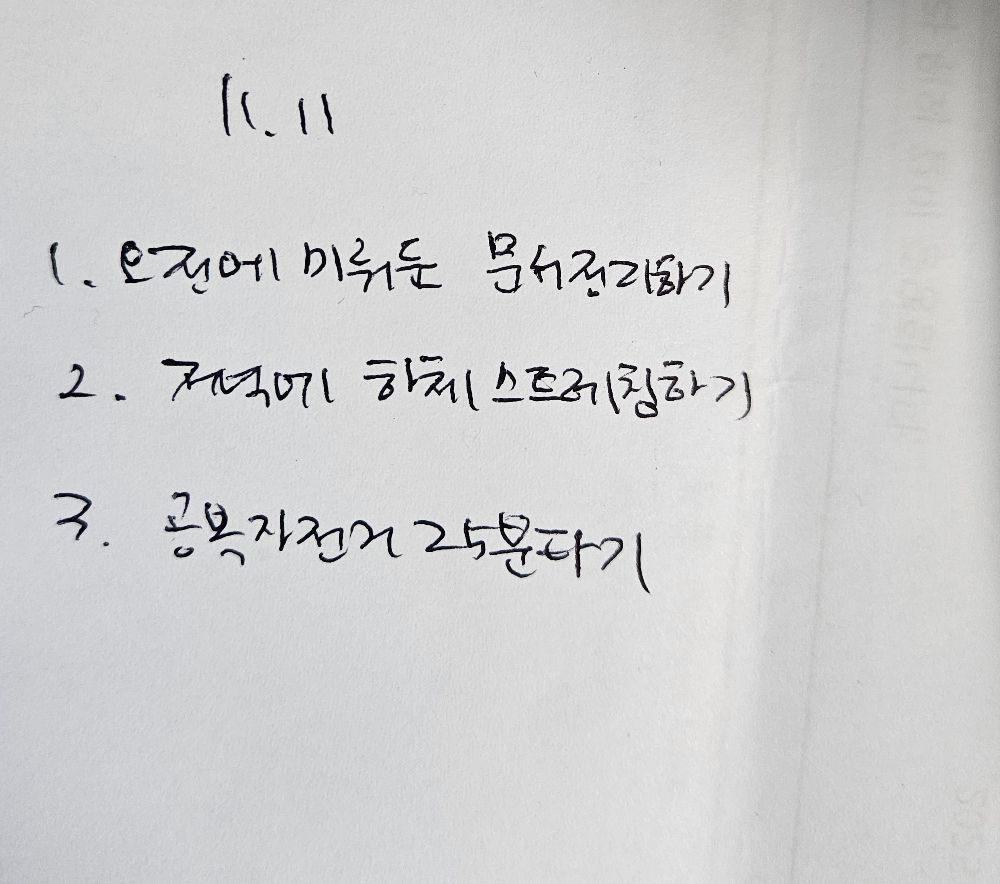 11.11
1. 오전에 미뤄둔 문서정리하기
2. 저녁에 하체스트레칭하기
3. 공복자전거 25분타기